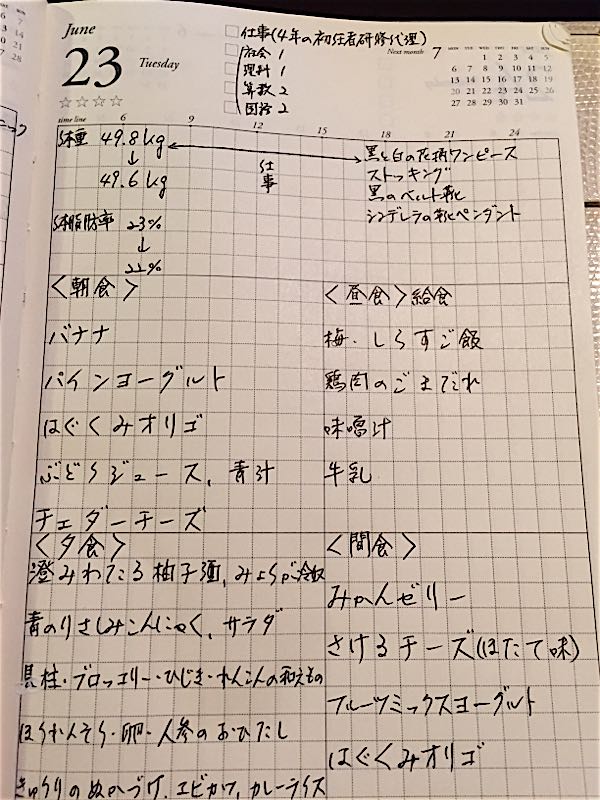 June
23
Tuesday
仕事(4年の初任者研修代理)
社会 1
理科 1
算数 2
国語 2
Next month 7
MON TUE WED THU FRI SAT SUN
1 2 3 4 5
6 7 8 9 10 11 12
13 14 15 16 17 18 19
20 21 22 23 24 25 26
27 28 29 30 31
time line 6 9 12 15 18 21 24
体重 49.8kg
↓
49.6kg
仕事
黒と白の花柄ワンピース
ストッキング
黒のベルト靴
シンデレラの靴ペンダント
体脂肪率 23%
↓
22%
<朝食>
バナナ
パインヨーグルト
はぐくみオリゴ
ぶどうジュース、青汁
チェダーチーズ
<昼食>給食
梅・しらすご飯
鶏肉のごまだれ
味噌汁
牛乳
<夕食>
澄みわたる柚子酒、みょうが冷奴
青のりさしみこんにゃく、サラダ
貝柱・ブロッコリー・ひじき・れんこんの和えもの
ほうれんそう・卵・人参のおひたし
きゅうりのぬかづけ、エビカツ、カレーライス
<間食>
みかんゼリー
さけるチーズ(ほたて味)
フルーツミックスヨーグルト
はぐくみオリゴ